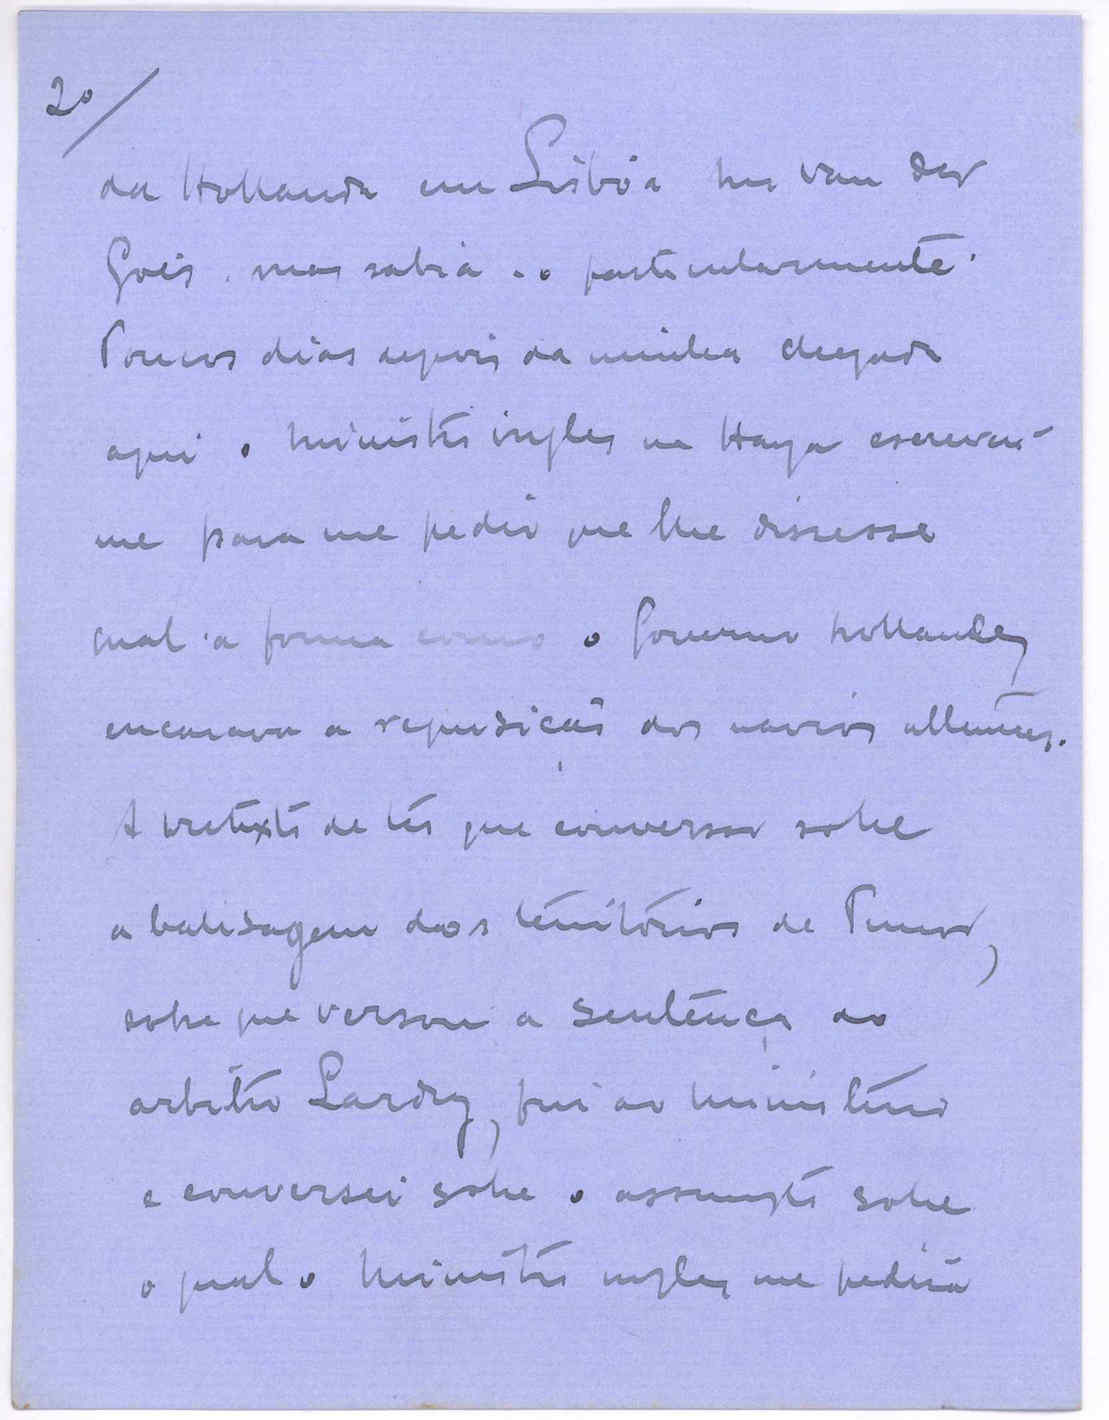 20/
da Hollanda em Lisbôa Mr van der
Goes, mas sabia-o particularmente.
Poucos dias depois da minha chegada
aqui o Ministro inglez na Haya escreveu-
me para me pedir que lhe dissesse
qual a forma como o Governo hollandez
encarava a requisição dos navios allemães.
A pretexto de ter que conversar sobre
a balisagem dos territórios de Timor,
sobre que versou a sentença do
arbitro Lardy, fui ao Ministerio
e conversei sobre o assumpto sobre
o qual o Ministro inglez me pedira